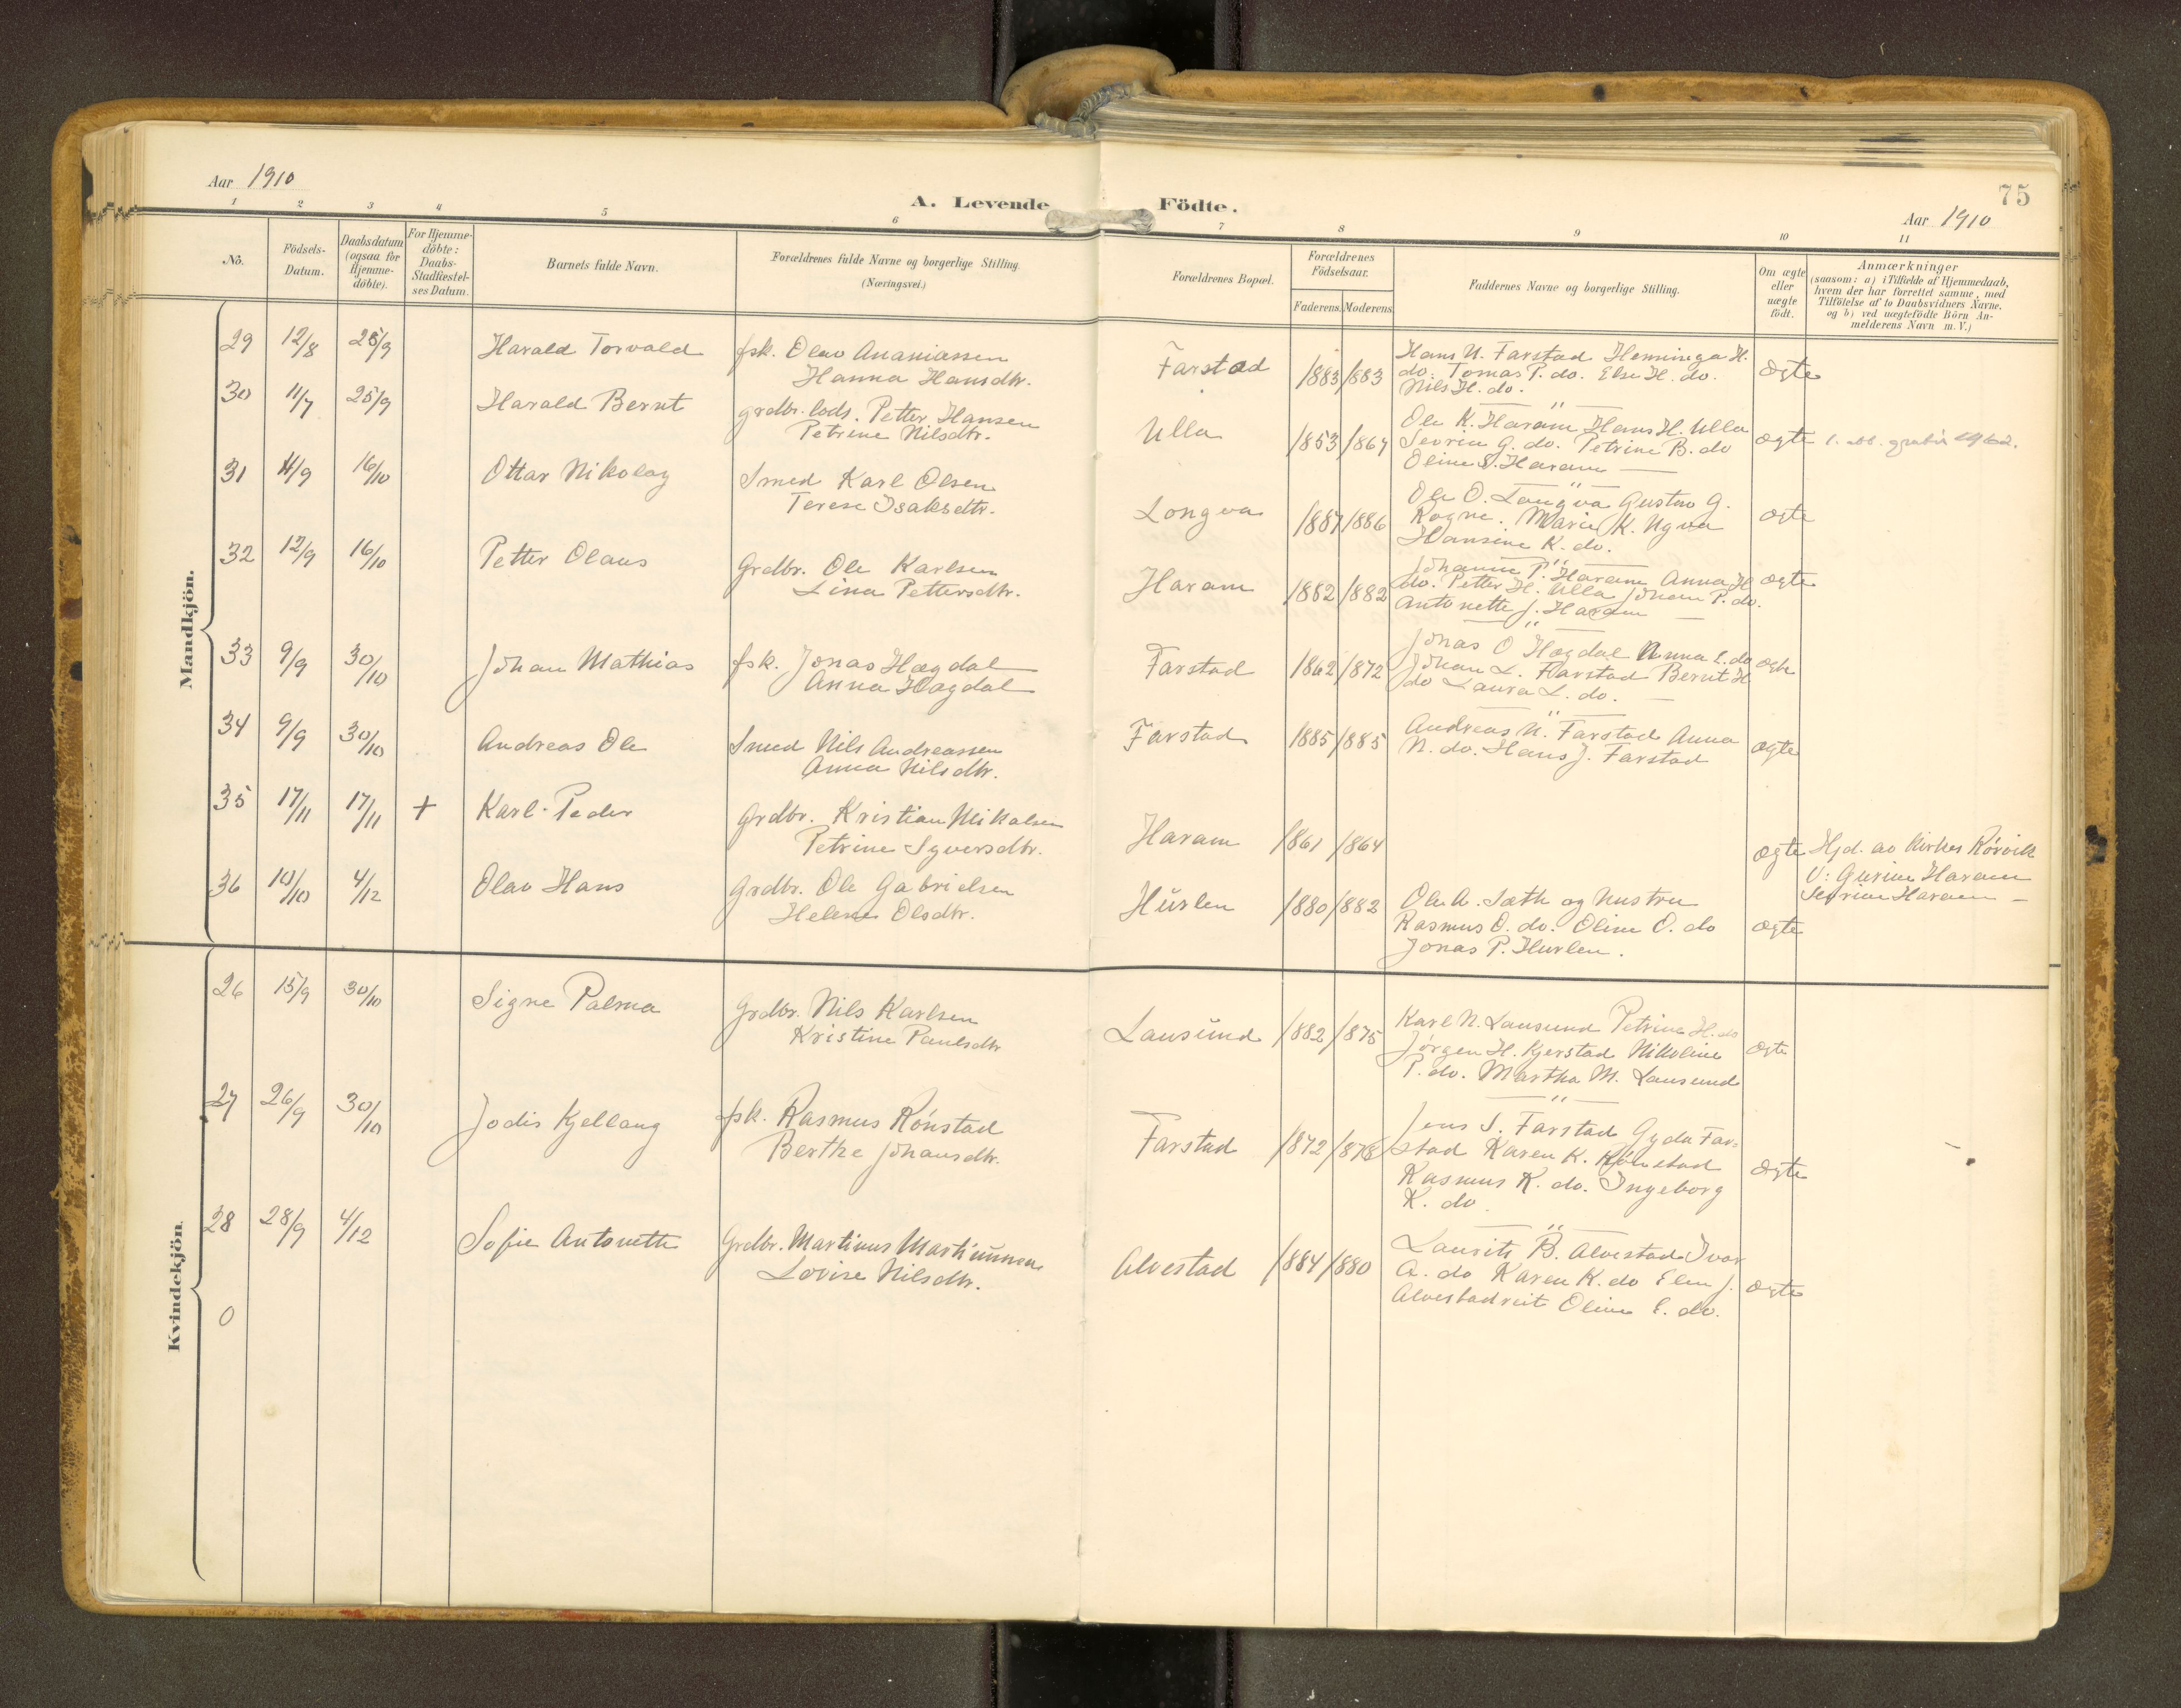 Aar 1910
A. Levende Födte.
75
Aar 1910
1 2 3 4 5 6 7 8 9 10 11
No.
Födsels-
Datum.
Daabsdatum
(ogsaa for
Hjemme-
döbte).
For Hjemme-
döbte:
Daabs-
Stadfæstel-
ses Datum.
Barnets fulde Navn.
Forældrenes fulde Navne og borgerlige Stilling.
(Næringsvei.)
Forældrenes Bopæl.
Forældrenes
Födselsaar.
Faderens. Moderens.
Faddernes Navne og borgerlige Stilling.
Om ægte
eller
uægte
födt.
Anmærkninger
(saasom: a) i Tilfælde af Hjemmedaab,
hvem der har forrettet samme, med
Tilföielse af to Daabsvidners Navne.
og b) ved uægtefödte Börn An-
melderens Navn m. V.)
Mandkjön.
29 12/8 25/9 Harald Torvald fsk. Olav Ananiassen
Hanna Hansdtr.
Farstad 1883 1883 ægte
Hans N. Farstad Henninga H.
do. Tomas P. do. Else H. do.
Nils H. do.
30 11/7 25/9 Harald Bernt grdbr. lods. Petter Hansen
Petrine Nilsdtr.
Ulla 1853 1867 ægte
Ole K. Haram Hans H. Ulla
Sevrin G. do. Petrine B. do
Oline S. Haram
31 4/9 16/10 Ottar Nikolay Smed Karl Olsen
Terese Isaksdtr.
Longva 1887 1886 ægte
Ole O. Longva Gustav G.
Rogne. Marie K. Ugva
Hansine K. do.
32 12/9 16/10 Petter Olaus Grdbr. Ole Karlsen
Lina Pettersdtr.
Haram 1882 1882 ægte
Johanne P. Haram Anna H
do. Petter H. Ulla Johan P. do.
Antonette J. Haram
33 9/9 30/10 Johan Mathias fsk. Jonas Hægdal
Anna Hægdal
Farstad 1862 1872 ægte
Jonas O Hægdal Anna E. do
Johan L. Farstad Bernt H
do Laura L. do.
34 9/9 30/10 Andreas Ole Smed Nils Andreassen
Anna Nilsdtr.
Farstad 1885 1885 ægte
Andreas N. Farstad Anna
N. do. Hans J. Farstad
35 17/11 17/11 + Karl Peder Grdbr. Kristian Nikolsen
Petrine Syversdtr.
Haram 1861 1864 ægte
Hjd. av Kirkes. Rörvik
V: Gurine Haram
Sevrine Haram
36 10/10 4/12 Olav Hans Grdbr. Ole Gabrielsen
Helene Olsdtr.
Hurlen 1880 1882 ægte
Ole A. Sæth og hustru
Rasmus O. do. Oline O. do
Jonas P. Hurlen.
Kvindekjön.
26 15/9 30/10 Signe Palma Grdbr. Nils Karlsen
Kristine Paulsdtr
Lausund 1882 1875 ægte
Karl N. Lausund Petrine H. do
Jörgen H. Kjerstad Nikoline
P. do. Martha M. Lausund
27 26/9 30/10 Jodis Kjellaug fsk. Rasmus Rönstad
Berthe Johansdtr.
Farstad 1872 1878 ægte
Jens S. Farstad Gyda Far-
stad Karen K. Rönstad
Rasmus K. do. Ingeborg
K. do.
28 28/9 4/12 Sofie Antonette Grdbr. Martinus Martinussen
Lovise Nilsdtr.
Alvestad 1884 1880 ægte
Laurits B. Alvestad Ivar
A. do Karen K. do Elen J.
Alvestadreit Oline E. do.
0